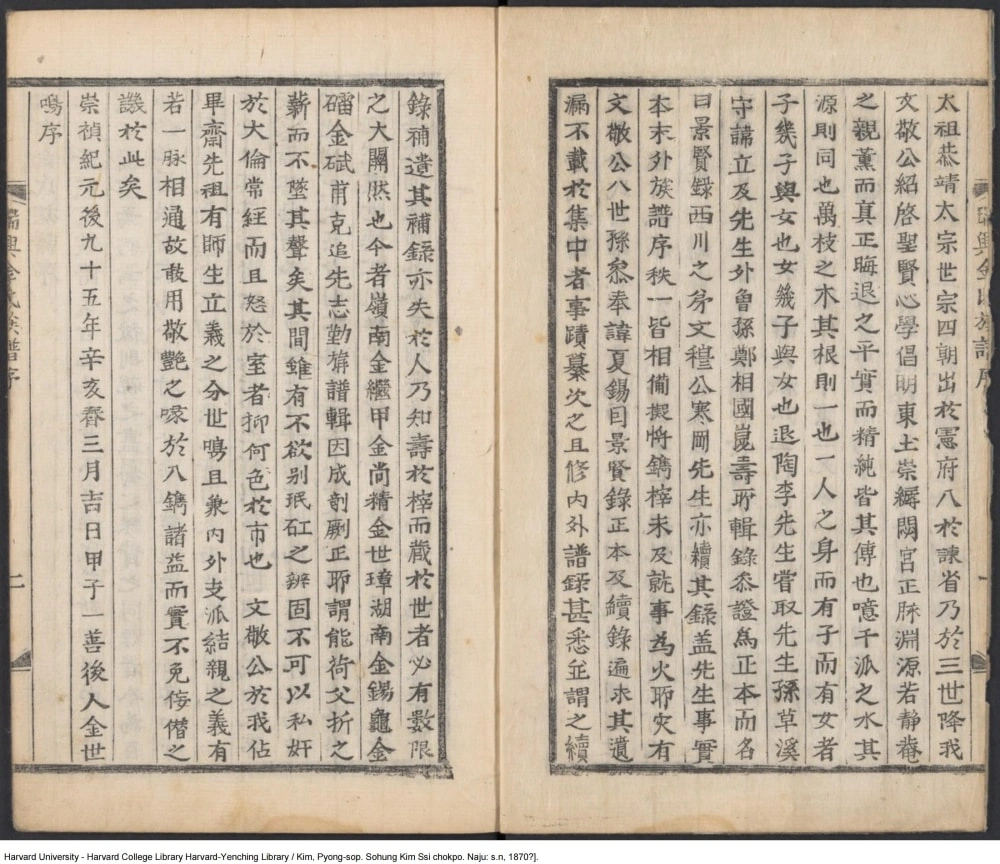 太祖恭靖太宗世宗四朝出於憲府八於諫省乃於三世降我
文敬公紹啓聖賢心學倡明東土崇縟閟宮正脉淵源若静菴
之親薫而真正晦退之平實而精純皆其傳也噫千派之水其
源則同也萬枝之木其根則一也一人之身而有子而有女者
子幾子與女也女幾子與女也退陶李先生嘗取先生孫草溪
守諱立及先生外曾孫鄭相國崑壽所輯錄叅證為正本而名
曰景賢錄西川之弟文穆公寒岡先生亦續其錄盖先生事實
本末外族譜序秩一皆相備擬將鐫梓未及就事為火所灾有
文敬公八世孫叅奉諱夏錫因景賢錄正本及續錄遍求其遺
漏不載於集中者事蹟纂次之且修內外譜錄甚悉並謂之續
錄補遺其補錄亦失於人乃知壽於梓而蔵於世者必有數限
之大關然也今者嶺南金繼甲金尚精金世璋湖南金錫龜金
磻金碔甫克追先志勤旃譜輯因成剞劂正所謂能荷父折之
薪而不墜其聲矣其間雖有不欲别珉矼之辨固不可以私奸
於大倫常經而且怒於室者抑何色於市也 文敬公於我佔
畢齋先祖有師生立義之分世鳴且衆內外支派結親之義有
若一脉相通故敢用敬艷之喙於八鐫諸益而實不免侮僭之
譏於此矣
崇禎紀元後九十五年辛亥春三月吉日甲子一善後人金世
鳴序
瑞興金氏族譜序
二